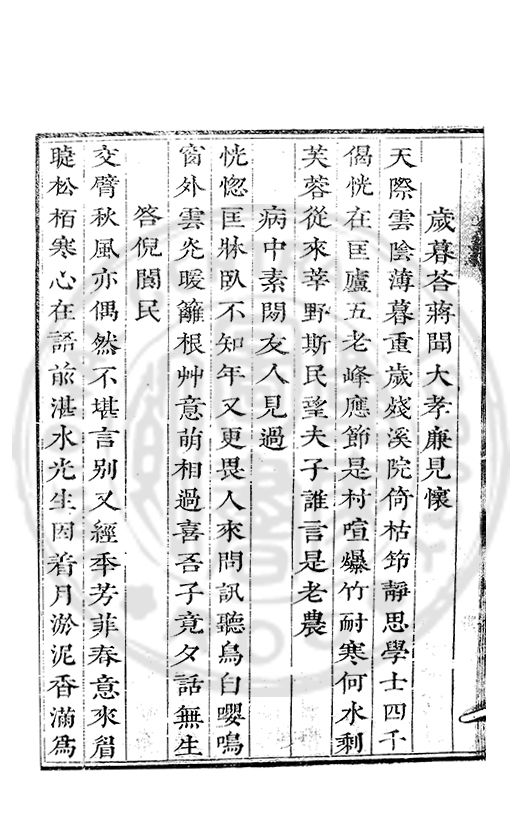 歲暮荅蔣聞大孝廉見懷
天際雲陰薄暮重歲殘溪院倚枯笻靜思學士四千
偈恍在匡廬五老峰應節是村喧爆竹耐寒何水剩
芙蓉從來莘野斯民望夫子誰言是老農
病中素友人見過
恍惚匡牀臥不知年又更畏人來問訊聽鳥自嚶鳴
窗外雲炗暖籬根艸意萌相過喜吾子竟夕話無生
答倪民
交臂秋風亦偶然不堪言別又經秊芳菲春意來眉
睫松栢寒心在語前湛水光生因着月淤泥香滿為